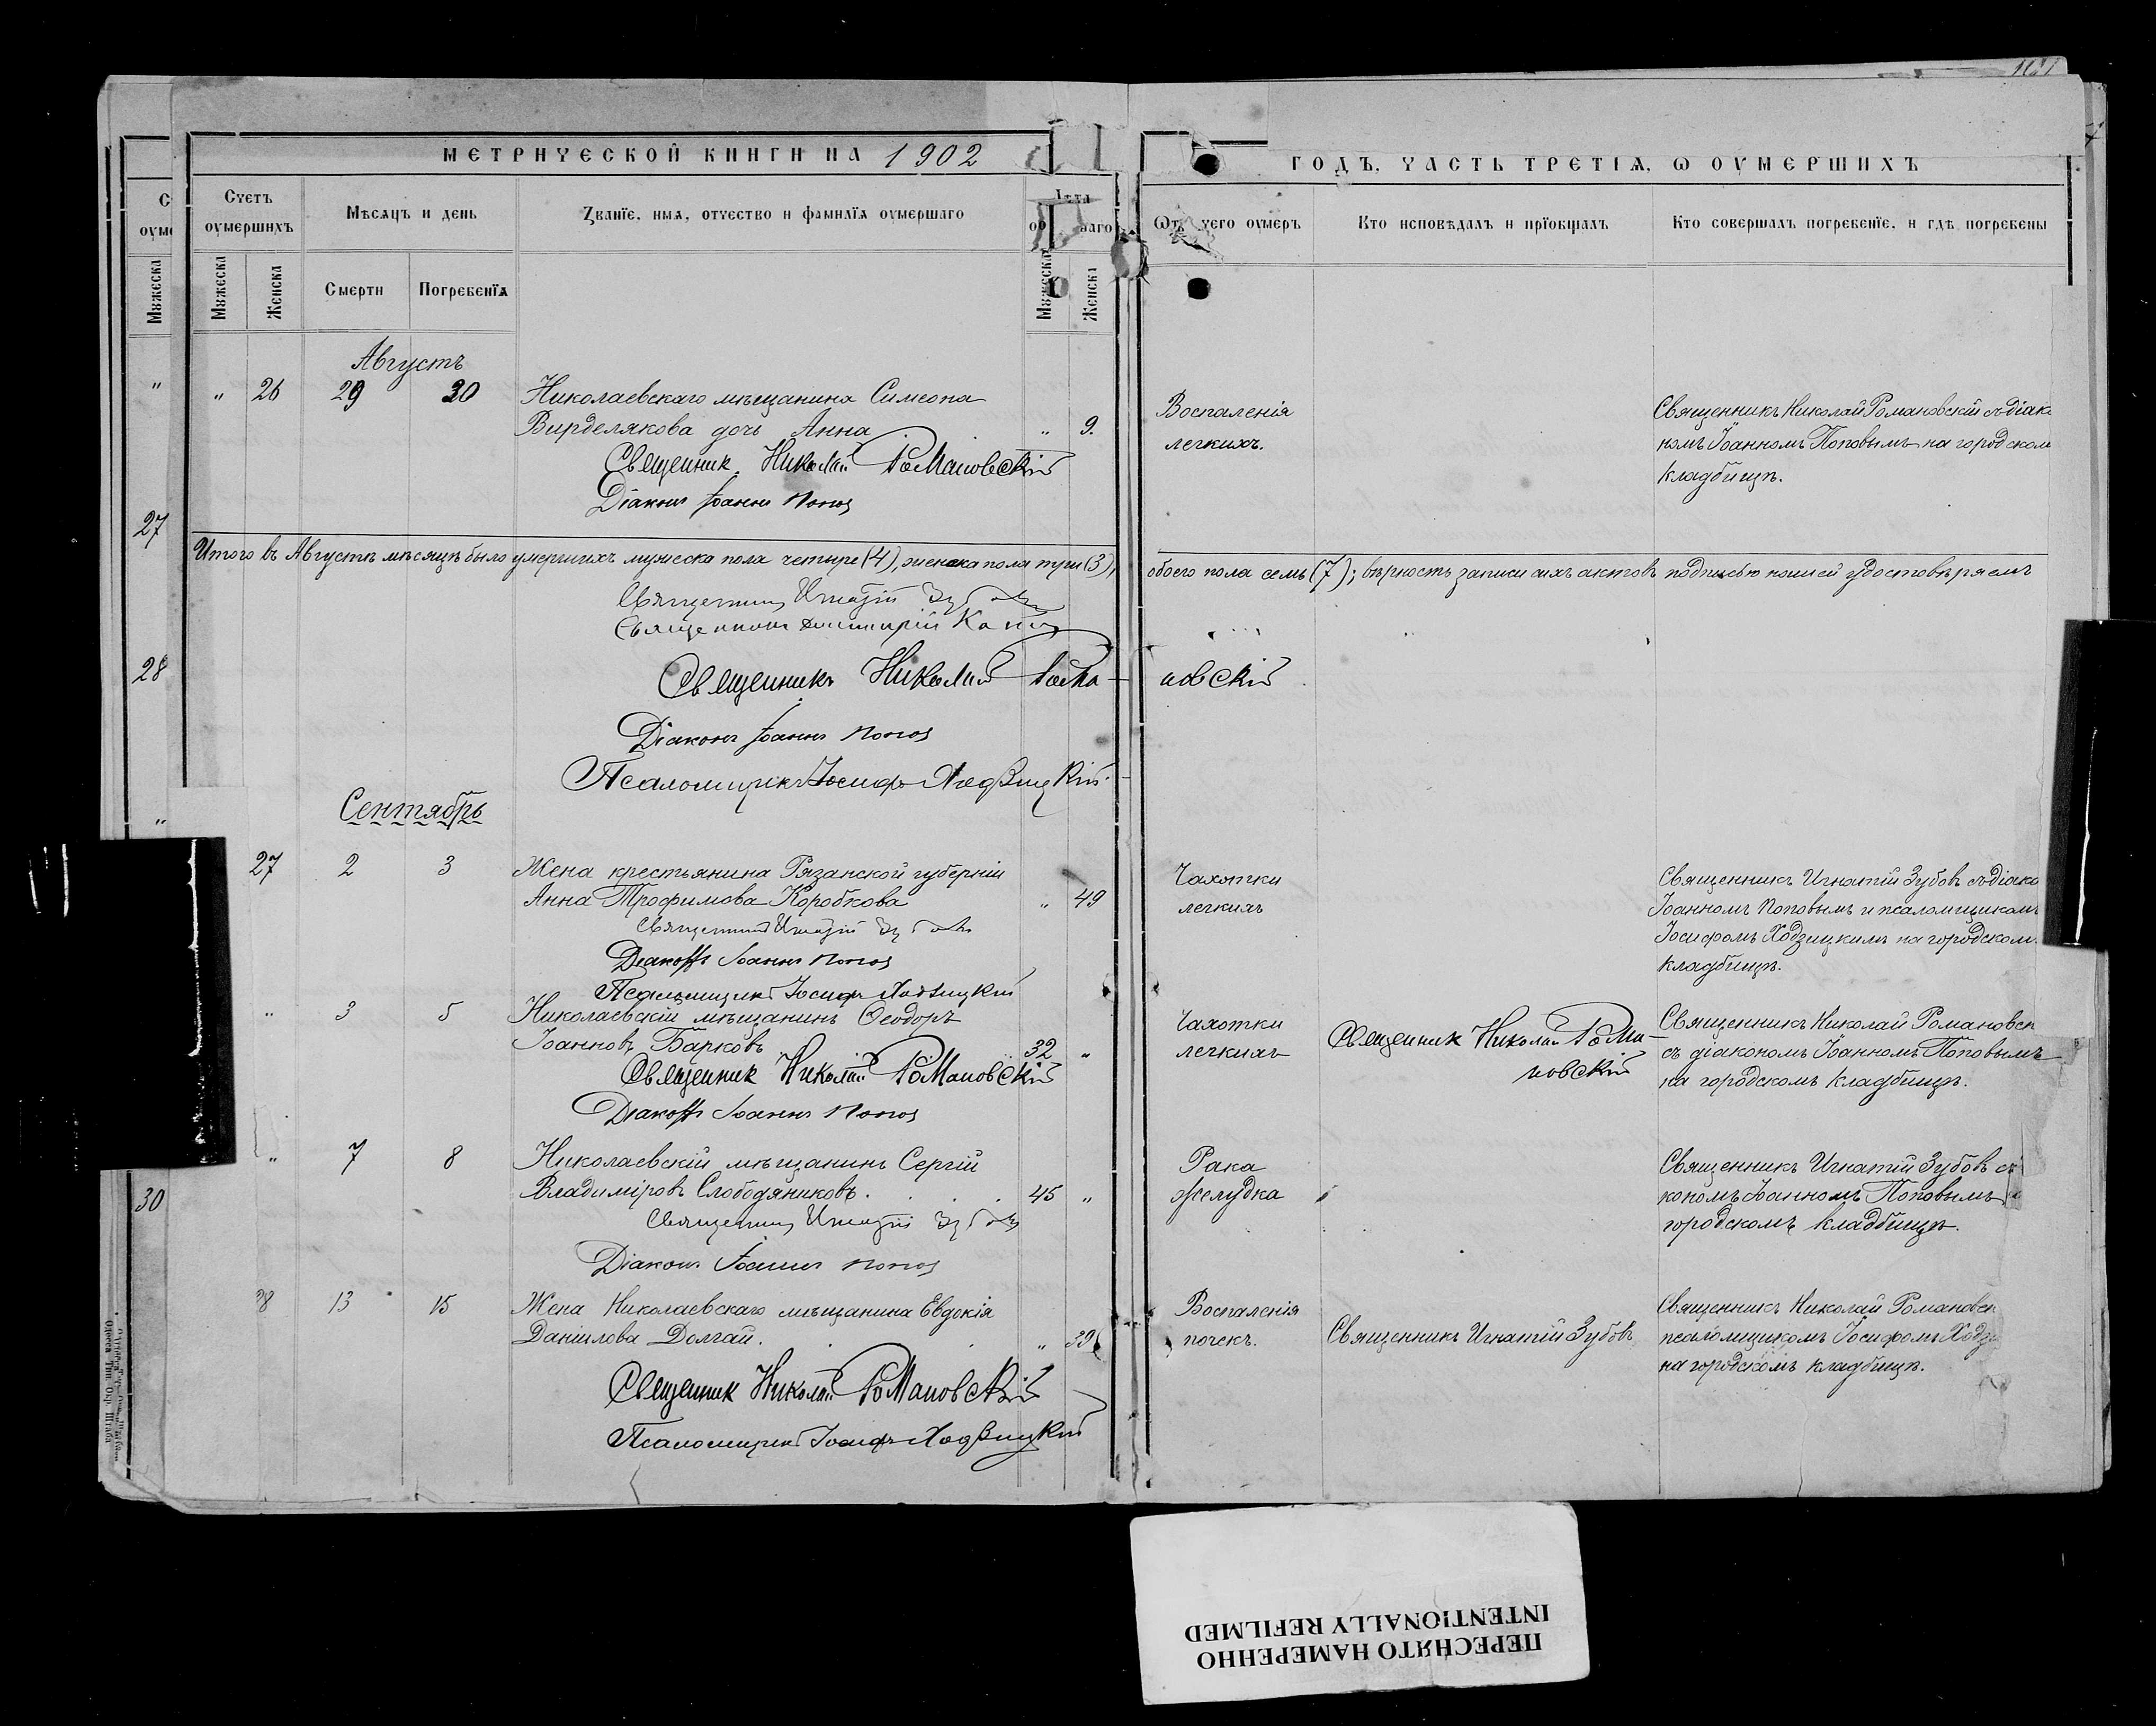 МЕТРИЧЕСКОЙ КНИГИ НА 1902
ГОДЪ, ЧАСТЬ ТРЕТІѦ, Ѡ ОУМЕРШИХЪ
Счетъ оумершихъ
Мѣсяцъ и день
Званїе, имя, отчество и фамилїя оумершаго
Лѣта
Ѿ чего оумеръ
Кто исповѣдалъ и прїобщалъ
Кто совершалъ погребенїе, и гдѣ погребены
Мужеска
Женска
Смерти
Погребенїя
Мужеска
Женска
Августъ
„ 26 29 30 Николаевскаго мѣщанина Симеона
Вирделякова дочь Анна „ 9.
Священник Николай Романовскій
Діаконъ Іоаннъ Попов
Воспаленія
легкихъ.
Священникъ Николай Романовскій съ діако
номъ Іоанномъ Поповымъ на городском
кладбищѣ.
27
Итого въ Августѣ мѣсяцѣ было умершихъ мужеска пола четыре (4), женска пола три (3),
обоего пола семь (7); вѣрность записи сихъ актовъ подписью нашей удостовѣряемъ
Священникъ Игнатій Зубовъ
Священникъ Димитрій
28
Священникъ Николай Рома-
новскій
Діаконъ Іоаннъ Попов
Псаломщикъ Іосифъ Ходзицкій
Сентябрь
27 2 3 Жена крестьянина Рязанской губерніи
Анна Трофимова Коробкова „ 49
Священникъ Игнатій Зубовъ
Діаконъ Іоаннъ Попов
Псаломщикъ Іосифъ Ходзицкій
Чахотки
легкихъ
Священникъ Игнатій Зубовъ съ діако
Іоанномъ Поповымъ и псаломщикомъ
Іосифомъ Ходзицкимъ на городском
кладбищѣ.
„ 3 5 Николаевскій мѣщанинъ Ѳеодоръ
Іоанновъ Барковъ 32 „
Священник Николай Романовскій
Діаконъ Іоаннъ Попов
Чахотки
легкихъ
Священник Николай Рома-
новскій
Священникъ Николай Романовск
съ діакономъ Іоанномъ Поповымъ
на городскомъ кладбищѣ.
„ 7 8 Николаевскій мѣщанинъ Сергій
Владиміровъ Слободяниковъ. 45 „
Священникъ Игнатій Зубовъ
Діаконъ Іоаннъ Попов
Рака
желудка
Священникъ Игнатій Зубовъ съ
кономъ Іоанномъ Поповымъ
городскомъ кладбищѣ.
30
28 13 15 Жена Николаевскаго мѣщанина Евдокія
Даніилова Долгай. „ 39
Священник Николай Романовскій
Псаломщикъ Іосифъ Ходзицкій
Воспаленія
почекъ.
Священникъ Игнатій Зубовъ
Священникъ Николай Романовск
псаломщикомъ Іосифомъ Ходзи
на городскомъ кладбищѣ.
Одесса Тип. Окр. Штаба
ПЕРЕСНЯТО НАМЕРЕННО
INTENTIONALLY REFILMED